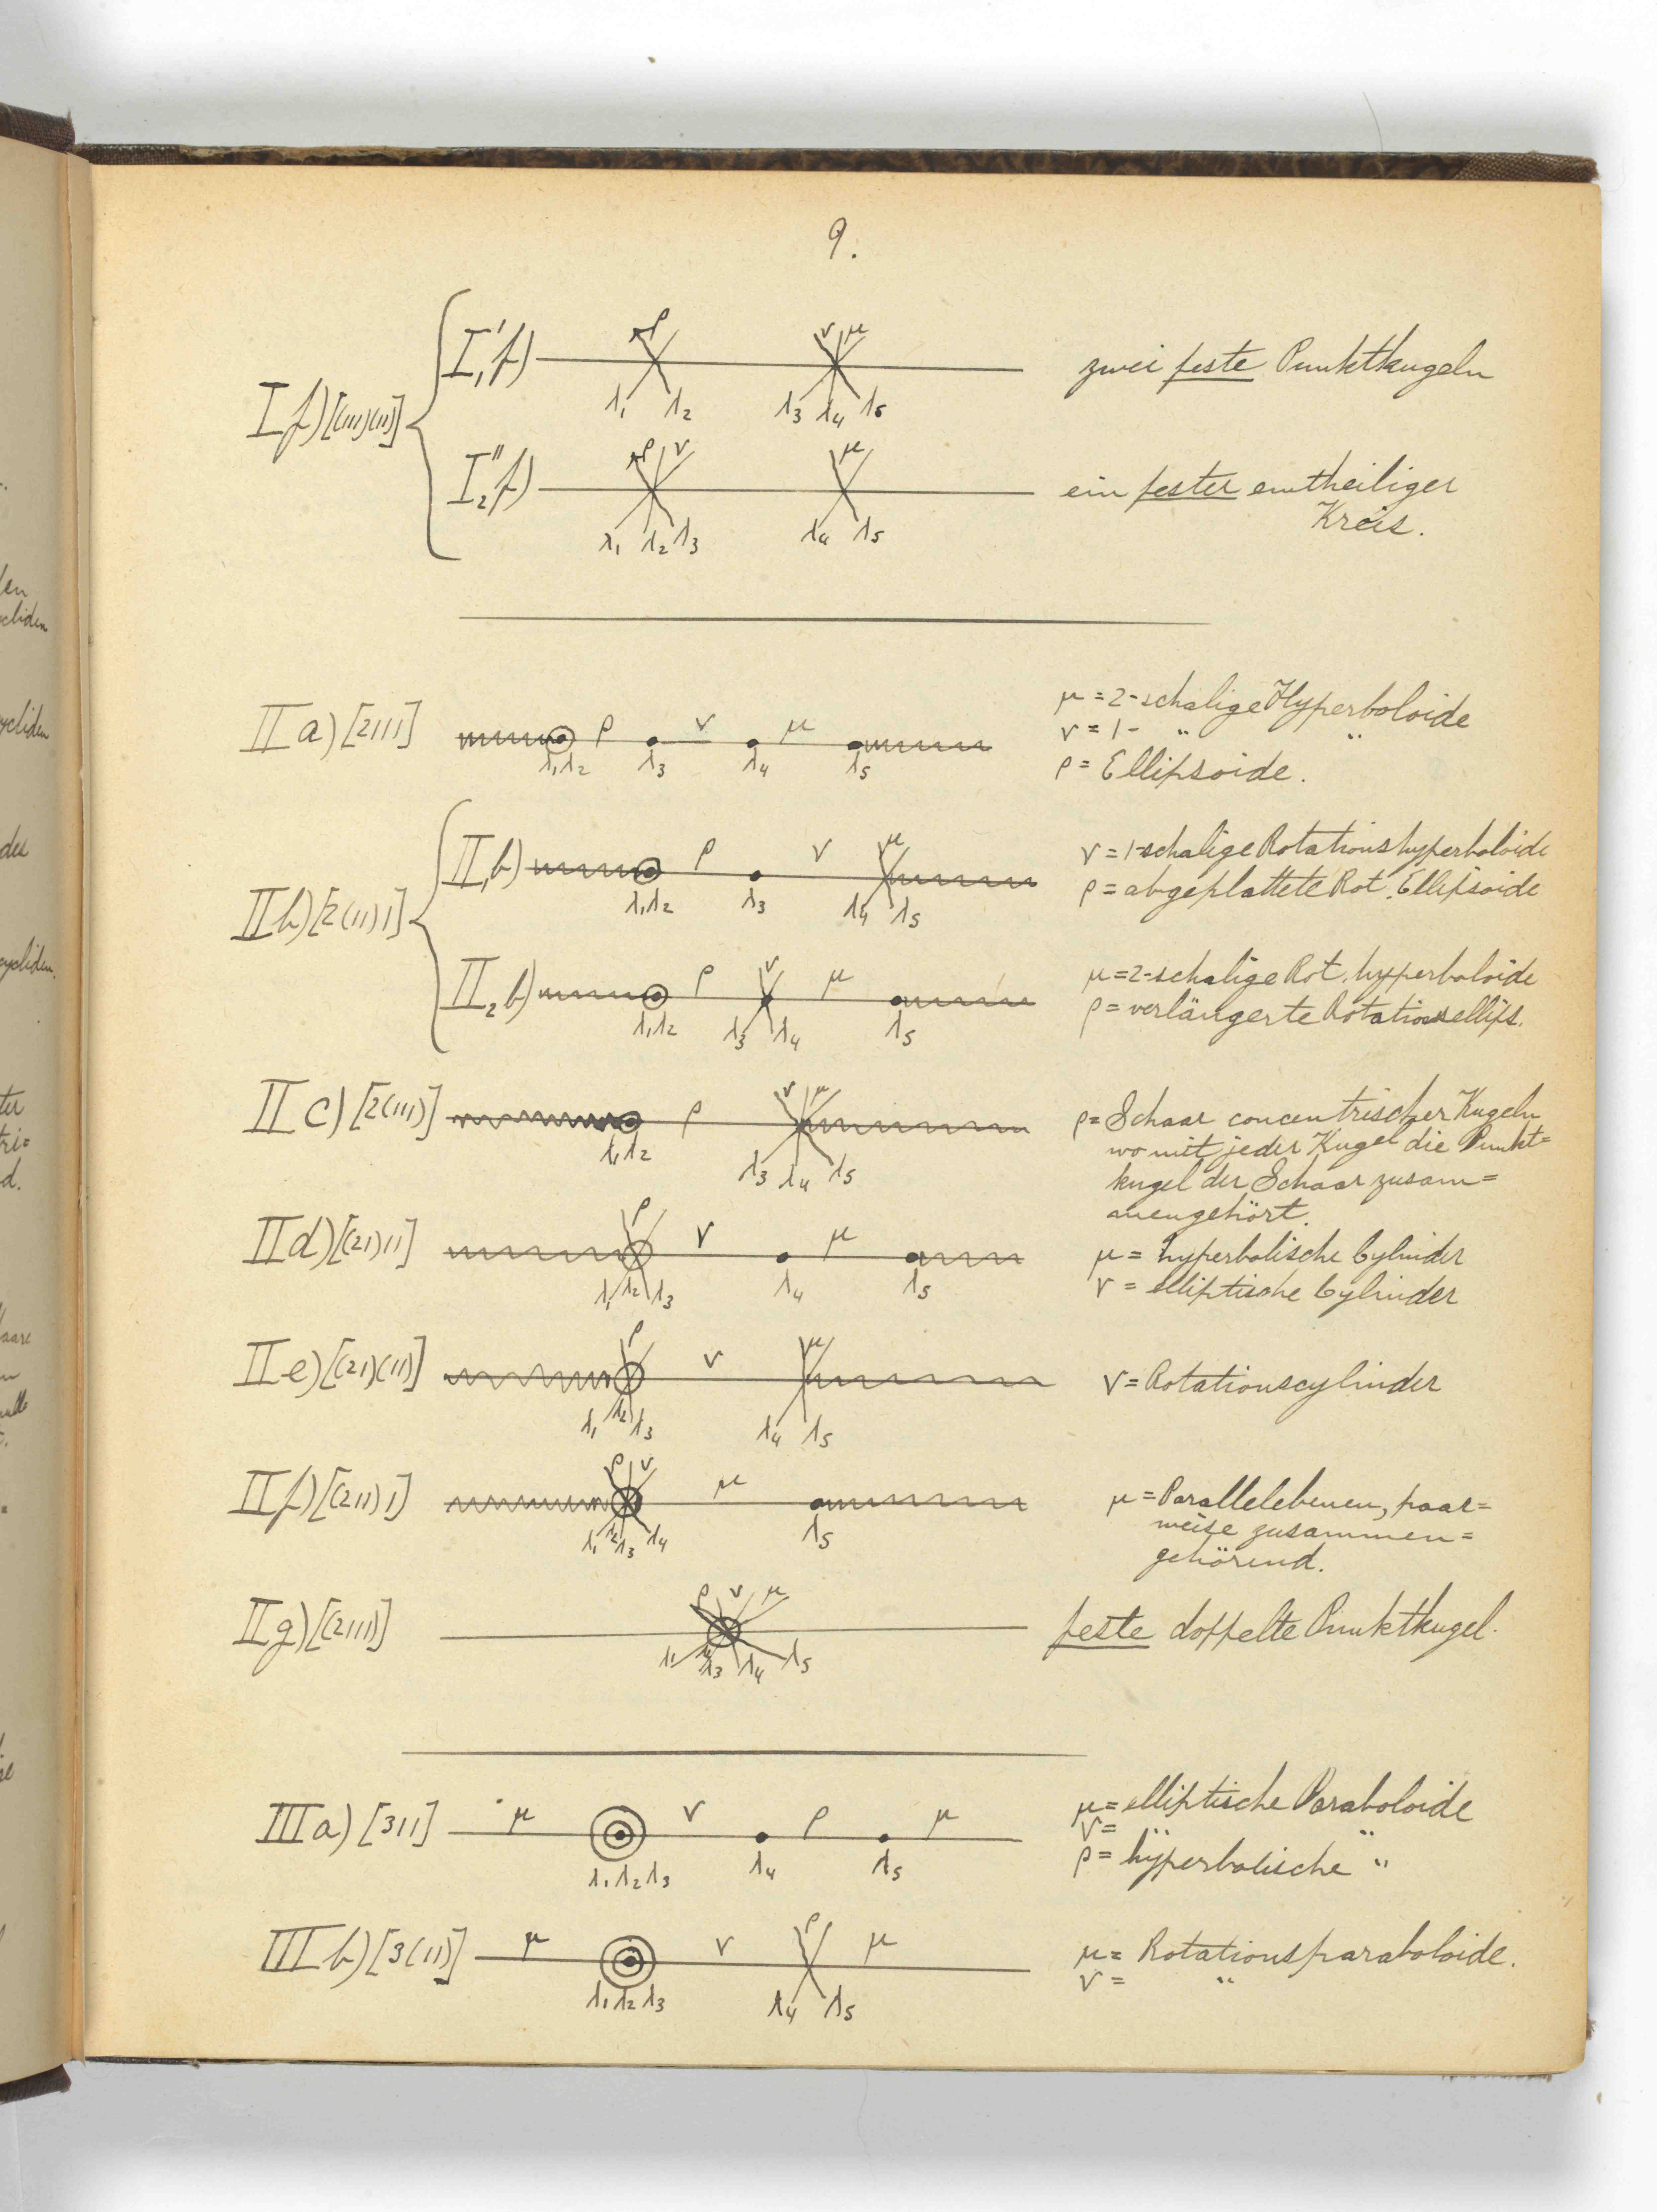 9.
I₁'f) ρ ν μ zwei feste Punktkugeln
λ₁ λ₂ λ₃ λ₄ λ₅
I f) [(111)(11)]
I₂''f) ρ ν μ ein fester eintheiliger
Kreis.
λ₁ λ₂ λ₃ λ₄ λ₅
II a) [2111] ρ ν μ
λ₁λ₂ λ₃ λ₄ λ₅
μ = 2-schalige Hyperboloide
ν = 1- " "
ρ = Ellipsoide.
II b) [2(11)1]
II₁b) ρ ν μ
λ₁λ₂ λ₃ λ₄ λ₅
ν = 1-schalige Rotationshyperboloide
ρ = abgeplattete Rot. Ellipsoide
II₂b) ρ ν μ
λ₁λ₂ λ₃ λ₄ λ₅
μ = 2-schalige Rot. hyperboloide
ρ = verlängerte Rotationsellips.
II c) [2(111)] ρ ν μ
λ₁λ₂ λ₃ λ₄ λ₅
ρ = Schaar concentrischer Kugeln
wo mit jeder Kugel die Punkt=
kugel der Schaar zusam=
mengehört.
II d) [(21)11] ρ ν μ
λ₁ λ₂ λ₃ λ₄ λ₅
μ = hyperbolische Cylinder
ν = elliptische Cylinder
II e) [(21)(11)] ρ ν μ ν = Rotationscylinder
λ₁ λ₂ λ₃ λ₄ λ₅
II f) [(211)1] ρ ν μ
λ₁ λ₂ λ₃ λ₄ λ₅
μ = Parallelebenen, paar=
weise zusammen=
gehörend.
II g) [(2111)] ρ ν μ feste doppelte Punktkugel.
λ₁ λ₂ λ₃ λ₄ λ₅
III a) [311] μ ν ρ μ
λ₁λ₂λ₃ λ₄ λ₅
μ = elliptische Paraboloide
ν = " "
ρ = hyperbolische "
III b) [3(11)] μ ν ρ μ
λ₁λ₂λ₃ λ₄ λ₅
μ = Rotationsparaboloide.
ν = "